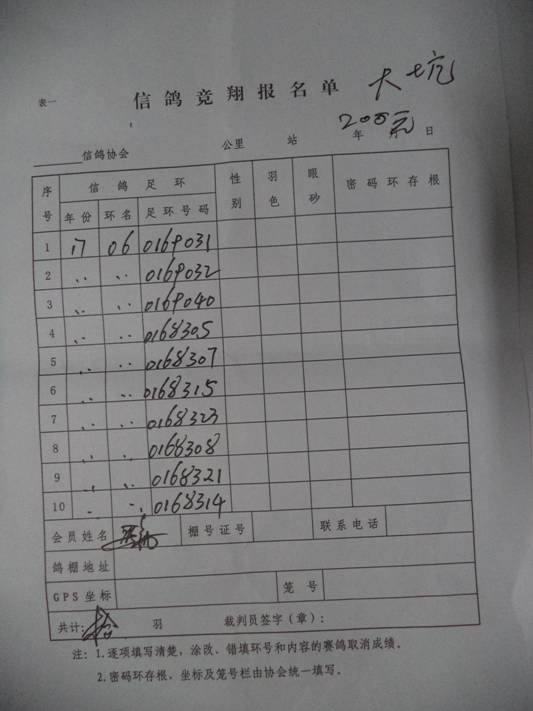 表一
信鸽竞翔报名单 大坑
2000元
信鸽协会 公里 站 年 月 日
序号 信鸽足环 性别 羽色 眼砂 密码环存根
年份 环名 足环号码
1 17 06 0169031
2 〃 〃 0169032
3 〃 〃 0169040
4 〃 〃 0168305
5 〃 〃 0168307
6 〃 〃 0168315
7 〃 〃 0168323
8 〃 〃 0168308
9 〃 〃 0168321
10 〃 〃 0168314
会员姓名 棚号证号 联系电话
鸽棚地址
GPS坐标 笼号
共计: 拾 羽 裁判员签字(章):
注: 1.逐项填写清楚,涂改、错填环号和内容的赛鸽取消成绩.
2.密码环存根,坐标及笼号栏由协会统一填写.